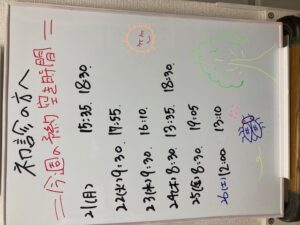 初診の方へ
=今週の予約空き時間=
21(月) 15:35. 18:30.
22(火) 9:30. 17:55.
23(水) 9:30. 16:10.
24(木) 8:30. 13:35. 18:30.
25(金) 8:30. 19:05
26(土) 12:00. 13:10